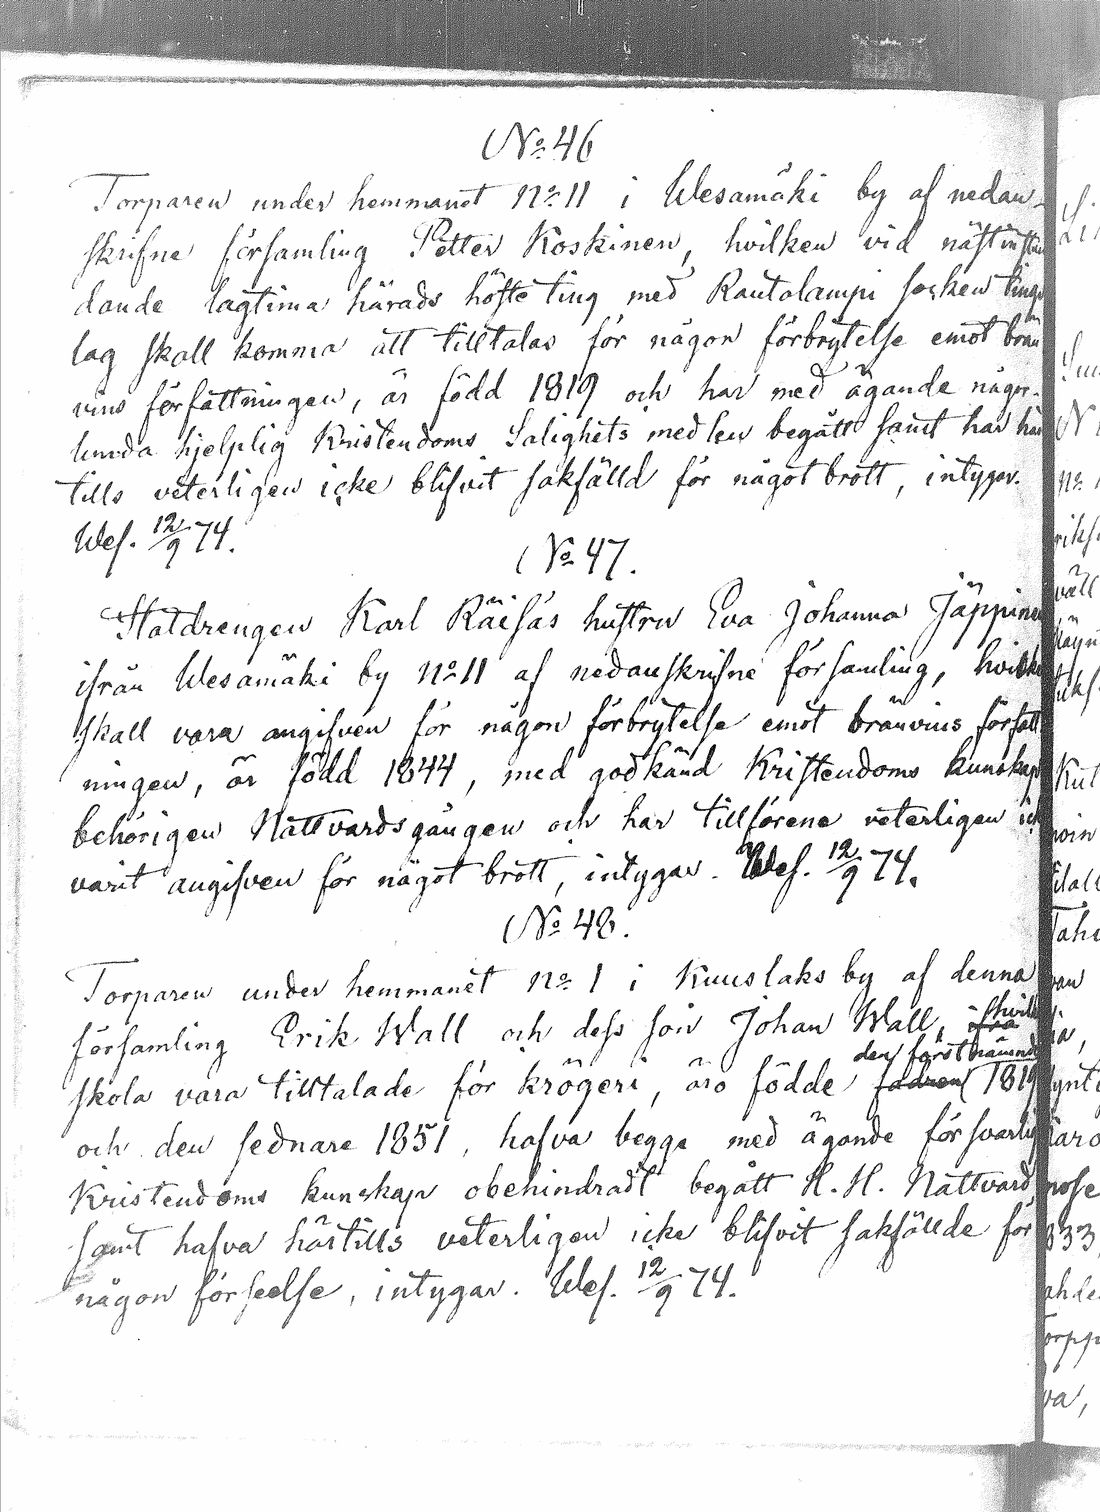 No 46
Torparen under hemmanet No 11 i Wesamäki by af nedan-
skrifne församling Petter Koskinen, hvilken vid näst instun
dande lagtima härads höste ting med Rautalampi socken tings
lag skall komma att tilltalas för någon förbrytelse emot brän
vins författningen, är född 1819 och har med ägande någor-
lunda hjelplig Kristendoms Salighets medlen begått samt har här
tills veterligen icke blifvit sakfälld för något brott, intygar.
Wes. 12/9 74.
No 47.
Statdrengen Karl Räisäs hustru Eva Johanna Jäppinen
ifrån Wesamäki by No 11 af nedanskrifne församling, hvilken
skall vara angifven för någon förbrytelse emot bränvins författ
ningen, är född 1844, med godkänd Kristendoms kunskap
behörigen Nattvardsgången och har tillförene veterligen ick
varit angifven för något brott, intygar. Wes. 12/9 74.
No 48.
Torparen under hemmanet No 1 i Kuuslaks by af denna
församling Erik Wall och dess son Johan Wall, hvilk
skola vara tilltalade för krögeri, äro födde fadren den förstnämnde 1819
och den sednare 1851, hafva begge med ägande försvarlig
Kristendoms kunskap obehindradt begått H. H. Nattvard,
samt hafva härtills veterligen icke blifvit sakfällde för
någon förseelse, intygar. Wes. 12/9 74.